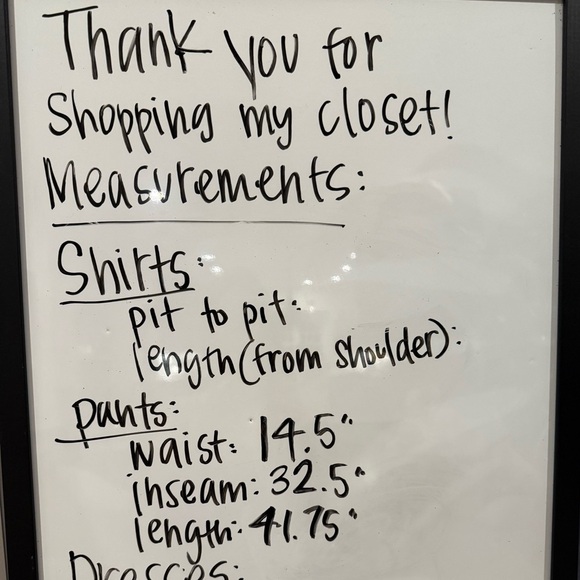 Thank you for
Shopping my closet!
Measurements:
Shirts:
pit to pit:
length (from shoulder):
pants:
waist: 14.5"
inseam: 32.5"
length: 41.75"
Dresses: